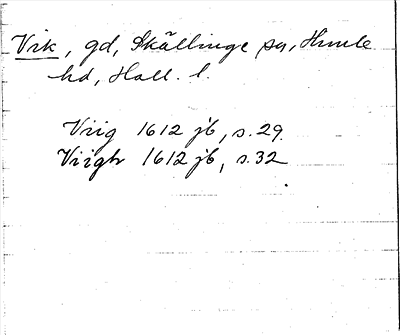 Vik, gd, Skällinge sn, Himle
hd, Hall. l.
Viig 1612 jb, s. 29.
Viigh 1612 jb, s. 32